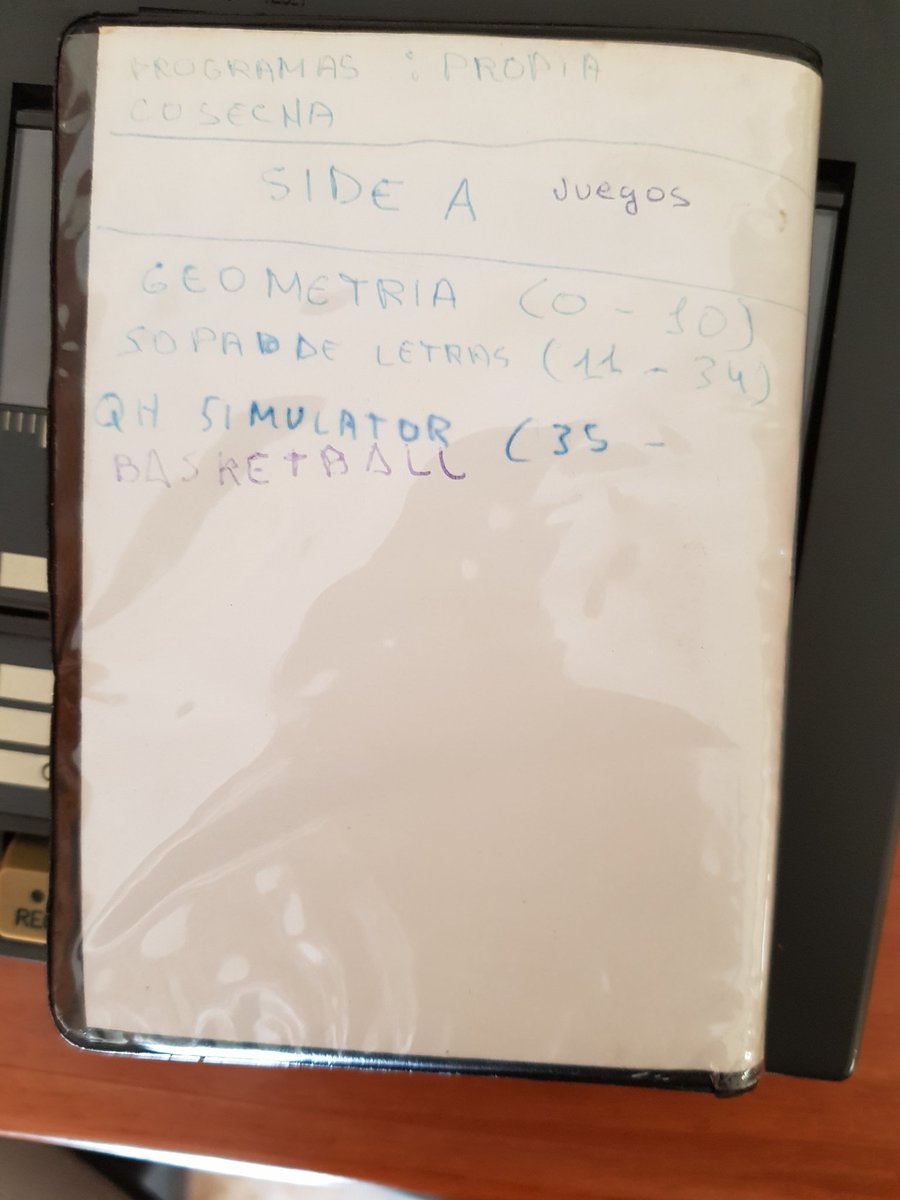 PROGRAMAS : PROPIA
COSECHA
SIDE A Juegos
GEOMETRIA (0 - 10)
SOPA DE LETRAS (11 - 34)
QH SIMULATOR (35 -
BASKETBALL
REC